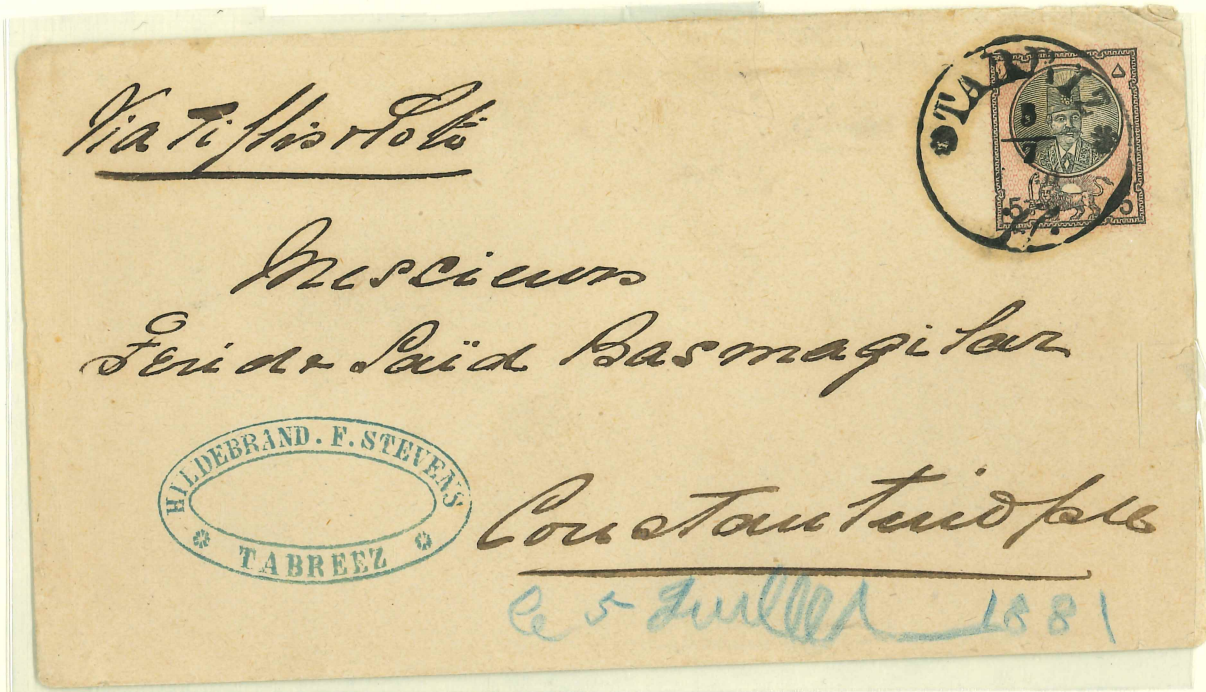 Via Tiflis & Poti
TABRIZ
8
7
۵
5 5
Messieurs
Ferid & Saïd Basmagilar
HILDEBRAND. F. STEVENS
TABREEZ
Constantinople
le 5 Juillet 1881